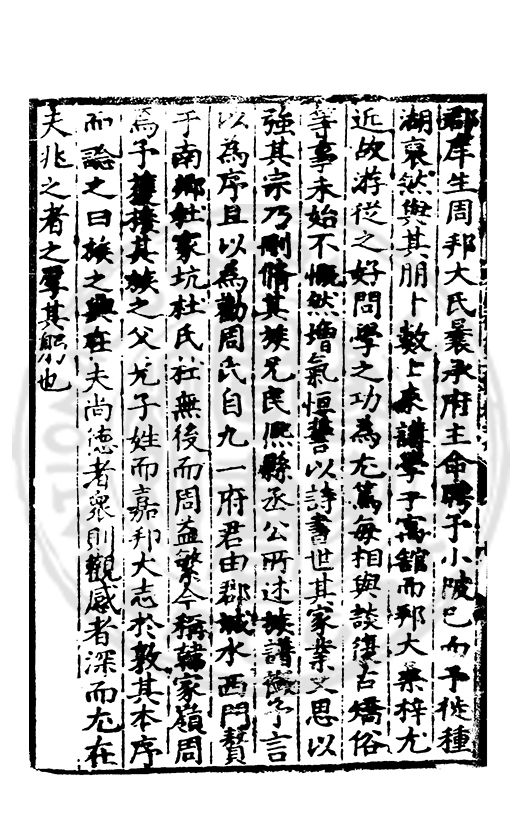 郡庠生周邦大氏曩承府主命聘予小陂已而予徙種
湖裒然與其朋卜數上來講學予寓舘而邦大桒梓尤
近故游從之好問學之功為尤篤每相與談復古矯俗
等事未始不慨然增氣恒誓以詩書世其家業又思以
強其宗乃刪脩其族兄民熈縣丞公所述族譜徵予言
以為序且以為勸周氏自九一府君由郡城水西門贅
于南鄉杜家坑杜氏杜無後而周益繁今稱韓家嶺周
焉予獲接其族之父兄子姓而嘉邦大志於敦其本序
而諗之曰族之興在夫尚德者衆則觀感者深而尤在
夫兆之者之學其熈也